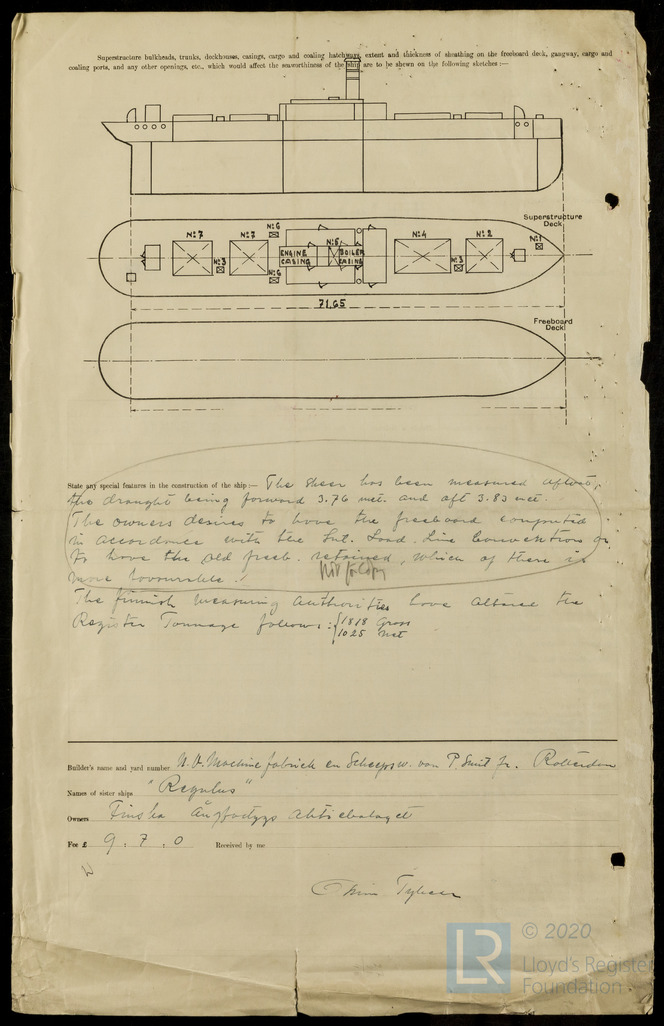 Superstructure bulkheads, trunks, deckhouses, casings, cargo and coaling hatchways, extent and thickness of sheathing on the freeboard deck, gangway, cargo and
coaling ports, and any other openings, etc., which would affect the seaworthiness of the ship are to be shewn on the following sketches :—
Superstructure
Deck
Nº7
Nº7
Nº6
Nº5
Nº4
Nº2
Nº1
Nº3
ENGINE
CASING
BOILER
CASING
Nº3
Nº6
71.65
Freeboard
Deck
State any special features in the construction of the ship :— The sheer has been measured afloat,
the draught being forward 3.76 met. and aft 3.83 met.
The owners desires to have the freeboard computed
in accordance with the Int. Load Line Convention or
to have the old freeb. retained, which of there is
more favourable.
Not for Copy
The finnish measuring authorities have altered the
Register Tonnage follows: 1818 Gross
1025 Net
Builder's name and yard number N.V. Machinefabriek en Scheepsw. van P. Smit Jr. Rotterdam
Names of sister ships "Regulus"
Owners Finska Ångfartygs Aktiebolaget
Fee £ 9.7.0 Received by me
LR © 2020
Lloyd's Register
Foundation